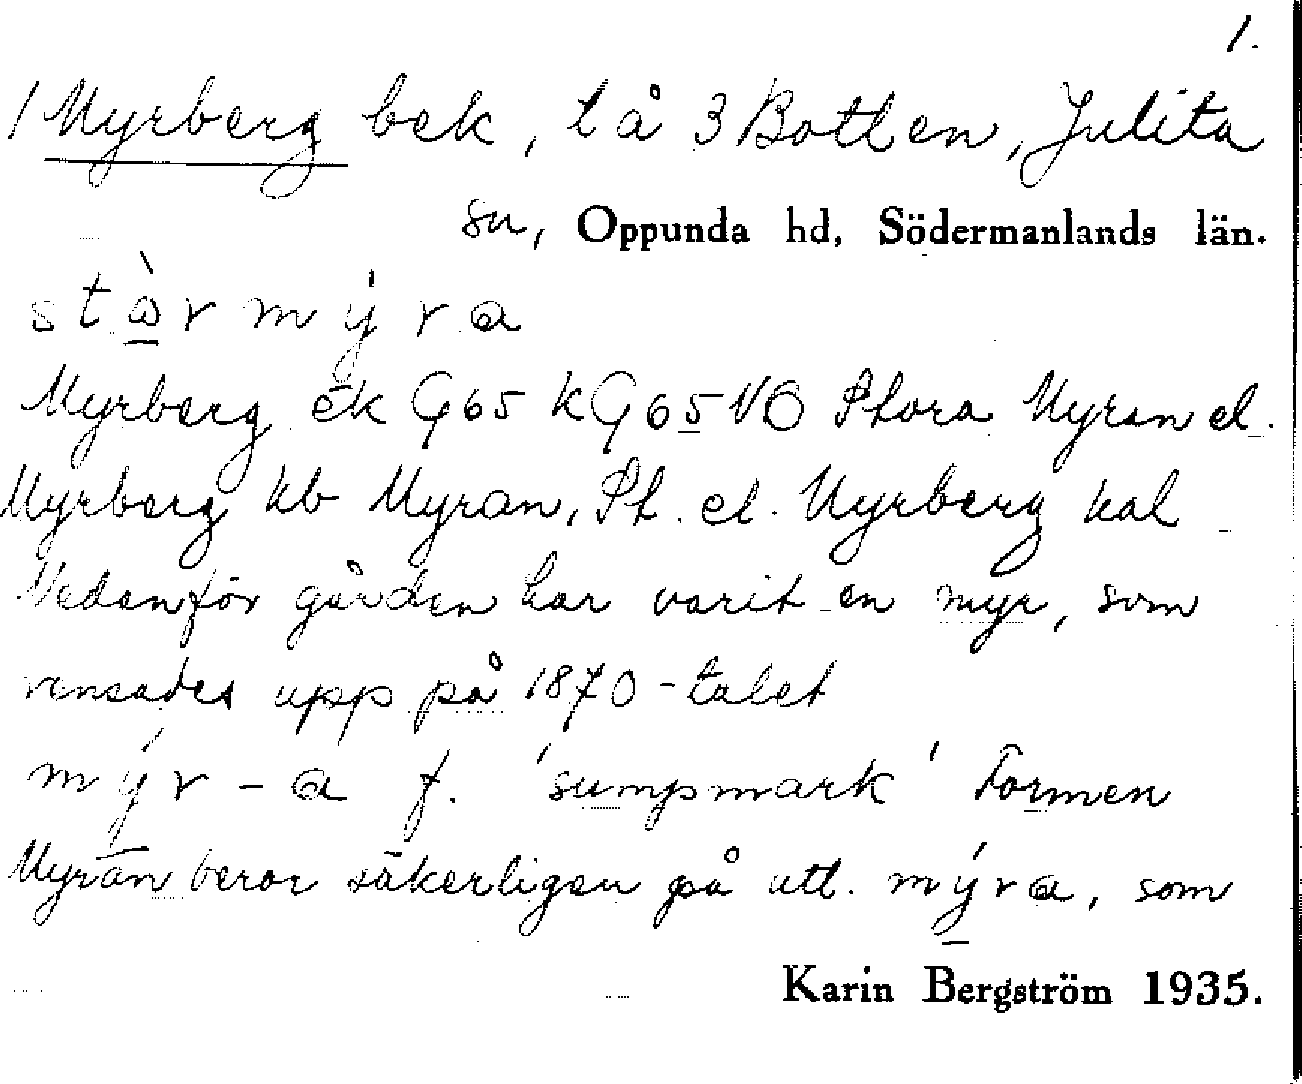 1.
/ Myrberg bek, t å 3 Botten, Julita
sn, Oppunda hd, Södermanlands län.
stò̱rmýra
Myrberg ek G65 kG65 NB Stora Myran el.
Myrberg kb Myran, St. el. Myrberg kal
Nedanför gården har varit en myr, som
rensades upp på 1870-talet
mýr-a f. 'sumpmark' Formen
Myran beror säkerligen på utt. mýra, som
Karin Bergström 1935.